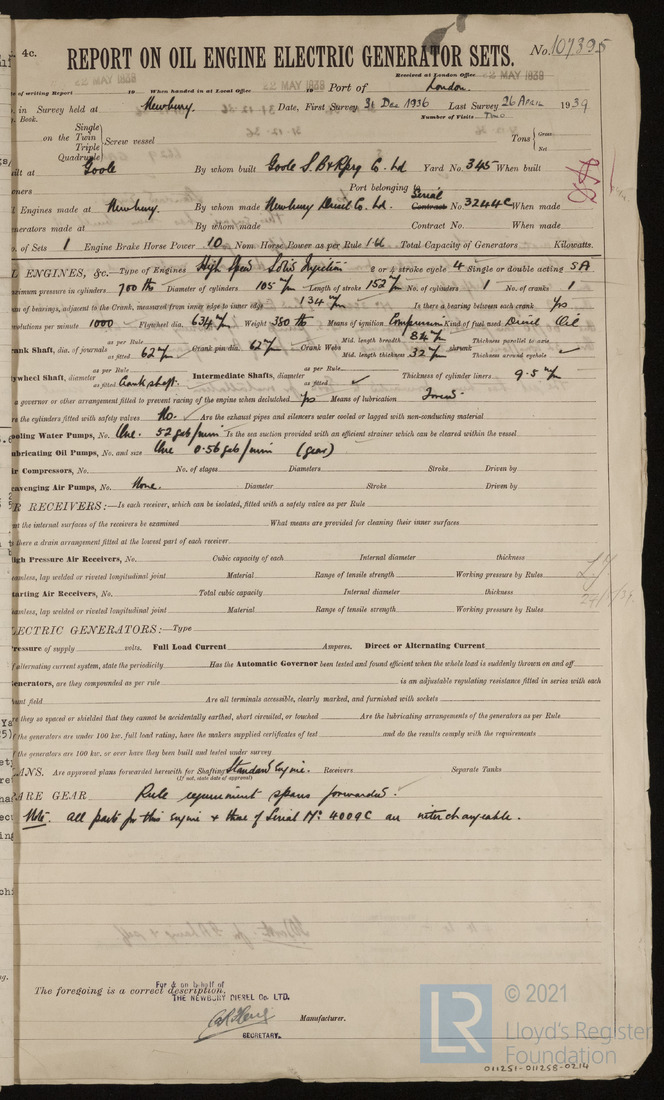 4c. REPORT ON OIL ENGINE ELECTRIC GENERATOR SETS. No. 107395
Received at London Office 22 MAY 1939
of writing Report 22 MAY 1939 19 When handed in at Local Office 22 MAY 1939 19 Port of London.
in Survey held at Newbury. Date, First Survey 31 Dec 1936 Last Survey 26 April 1939
Book. Number of Visits Two
Single
on the Twin
Triple
Quadruple
Screw vessel Tons Gross
Net
built at Goole By whom built Goole S.B & Rprg Co. Ld Yard No. 345 When built
ners Port belonging to
Engines made at Newbury. By whom made Newbury Diesel Co. Ld. Serial Contract No. 3244C When made
enerators made at By whom made Contract No. When made
o. of Sets 1 Engine Brake Horse Power 10 Nom. Horse Power as per Rule Total Capacity of Generators Kilowatts.
L ENGINES, &c.—Type of Engines High Speed Solid Injection 2 or 4 stroke cycle 4 Single or double acting SA
aximum pressure in cylinders 700 lb Diameter of cylinders 105 m/m Length of stroke 152 m/m No. of cylinders 1 No. of cranks 1
an of bearings, adjacent to the Crank, measured from inner edge to inner edge 134 m/m Is there a bearing between each crank Yes
evolutions per minute 1000 Flywheel dia. 634 m/m Weight 380 lb Means of ignition Compression Kind of fuel used Diesel Oil
rank Shaft, dia. of journals as per Rule as fitted 62 m/m Crank pin dia. 62 m/m Crank Webs Mid. length breadth 84 m/m Mid. length thickness 32 m/m shrunk Thickness parallel to axis Thickness around eyehole
lywheel Shaft, diameter as per Rule as fitted Crankshaft. Intermediate Shafts, diameter as per Rule as fitted Thickness of cylinder liners 9.5 m/m
a governor or other arrangement fitted to prevent racing of the engine when declutched Yes Means of lubrication Forced
re the cylinders fitted with safety valves No. Are the exhaust pipes and silencers water cooled or lagged with non-conducting material
ooling Water Pumps, No. One. 52 gals/min Is the sea suction provided with an efficient strainer which can be cleared within the vessel
ubricating Oil Pumps, No. and size One 0.56 gals/min (gear)
ir Compressors, No. No. of stages Diameters Stroke Driven by
cavenging Air Pumps, No. None. Diameter Stroke Driven by
R RECEIVERS:—Is each receiver, which can be isolated, fitted with a safety valve as per Rule
n the internal surfaces of the receivers be examined What means are provided for cleaning their inner surfaces
there a drain arrangement fitted at the lowest part of each receiver
igh Pressure Air Receivers, No. Cubic capacity of each Internal diameter thickness
eamless, lap welded or riveted longitudinal joint Material Range of tensile strength Working pressure by Rules
tarting Air Receivers, No. Total cubic capacity Internal diameter thickness
eamless, lap welded or riveted longitudinal joint Material Range of tensile strength Working pressure by Rules
ECTRIC GENERATORS:—Type
ressure of supply volts. Full Load Current Amperes. Direct or Alternating Current
f alternating current system, state the periodicity Has the Automatic Governor been tested and found efficient when the whole load is suddenly thrown on and off
enerators, are they compounded as per rule is an adjustable regulating resistance fitted in series with each
unt field Are all terminals accessible, clearly marked, and furnished with sockets
re they so spaced or shielded that they cannot be accidentally earthed, short circuited, or touched Are the lubricating arrangements of the generators as per Rule
f the generators are under 100 kw. full load rating, have the makers supplied certificates of test and do the results comply with the requirements
f the generators are 100 kw. or over have they been built and tested under survey
ANS. Are approved plans forwarded herewith for Shafting Standard Engine. Receivers Separate Tanks
(If not, state date of approval)
ARE GEAR Rule requirement spares forwarded.
Note. All parts for this engine & those of Serial No. 4009C are interchangeable.
The foregoing is a correct description,
For & on behalf of
THE NEWBURY DIESEL Co. LTD.
Manufacturer.
SECRETARY.
LR © 2021
Lloyd's Register
Foundation
011251-011258-0214